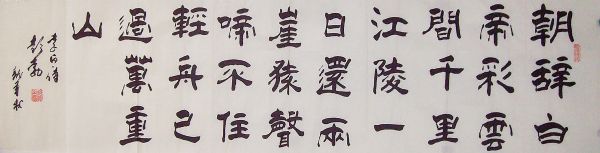 朝辭白
帝彩雲
間千里
江陵一
日還兩
崖猿聲
啼不住
輕舟已
過萬重
山
李白詩
彭勃